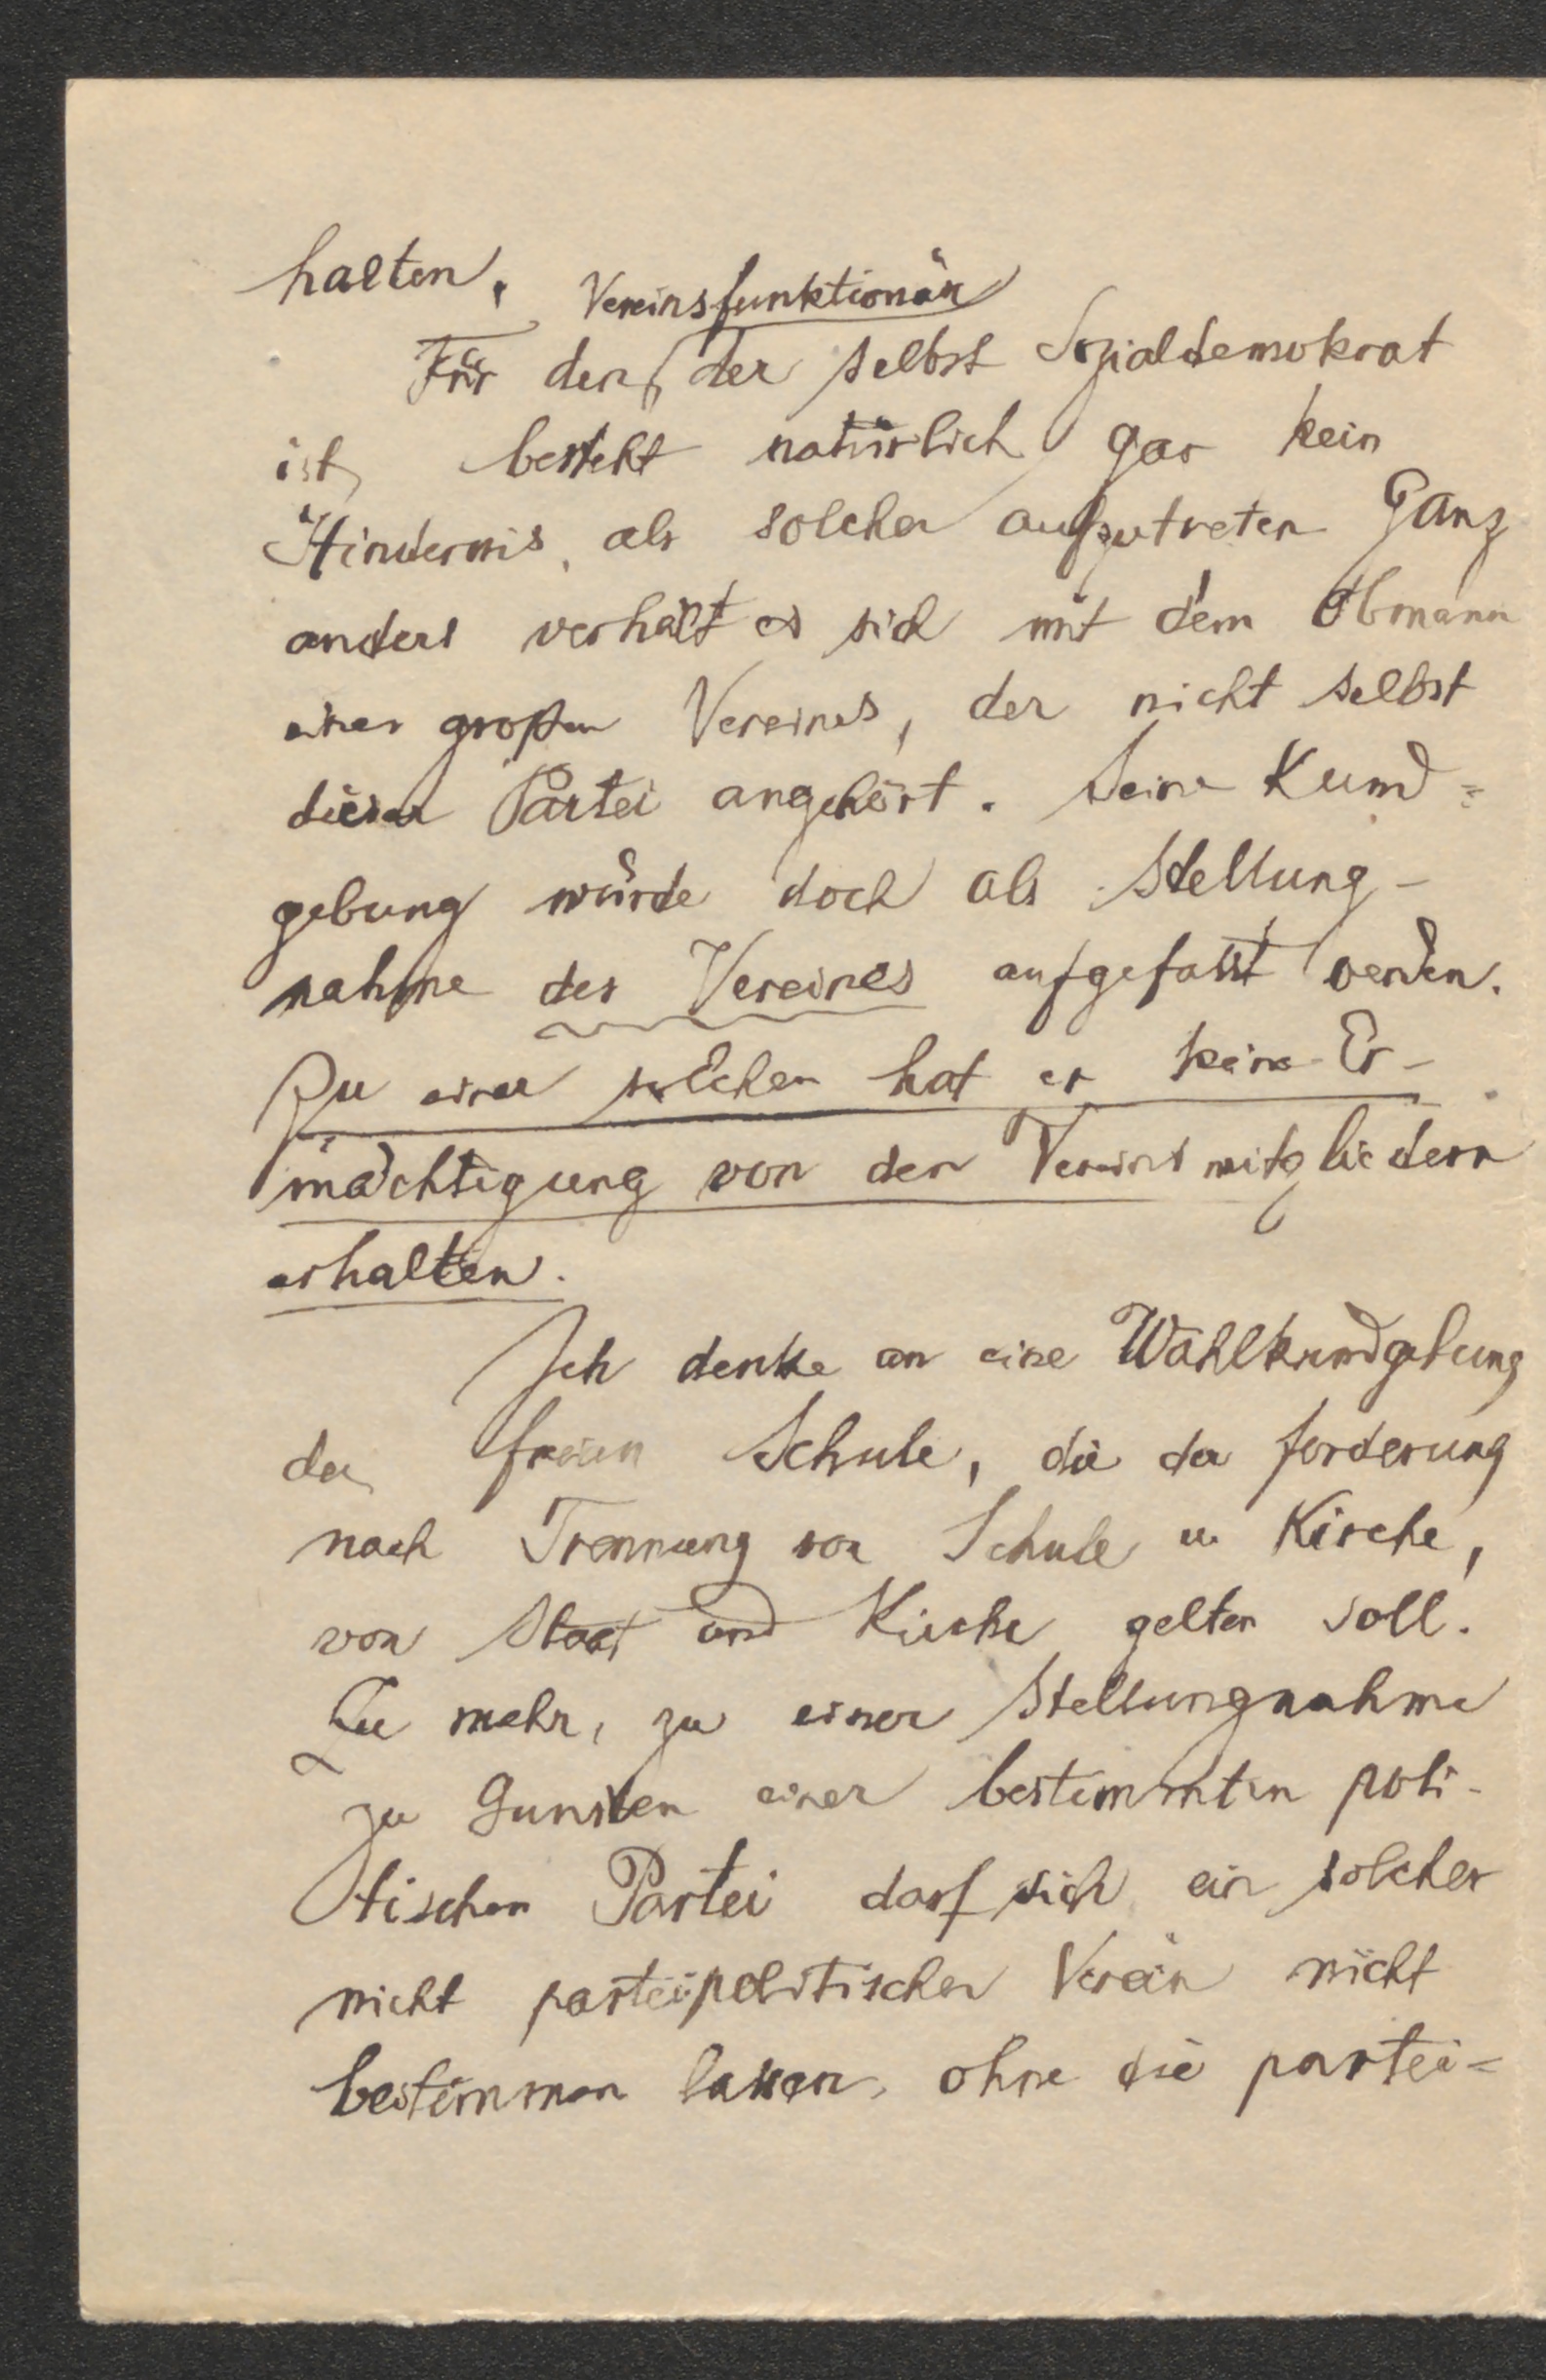 halten.
Vereinsfunktionär
Für den, der selbst Sozialdemokrat
ist, besteht natürlich gar kein
Hindernis, als solcher aufzutreten Ganz
anders verhält es sich mit dem Obmann
eines großen Vereines, der nicht selbst
dieser Partei angehört. Seine Kund=
gebung würde doch als Stellung-
nahme des Vereines aufgefasst werden.
Zu einer solchen hat er keine Er-
mächtigung von den Vereinsmitgliedern
erhalten.
Ich denke an eine Wahlkundgebung
der freien Schule, die der Forderung
nach Trennung von Schule u Kirche,
von Staat und Kirche gelten soll.
Zu mehr, zu einer Stellungnahme
zu Gunsten einer bestimmten poli-
tischen Partei darf sich ein solcher
nicht parteipolitischer Verein nicht
bestimmen lassen, ohne die partei=